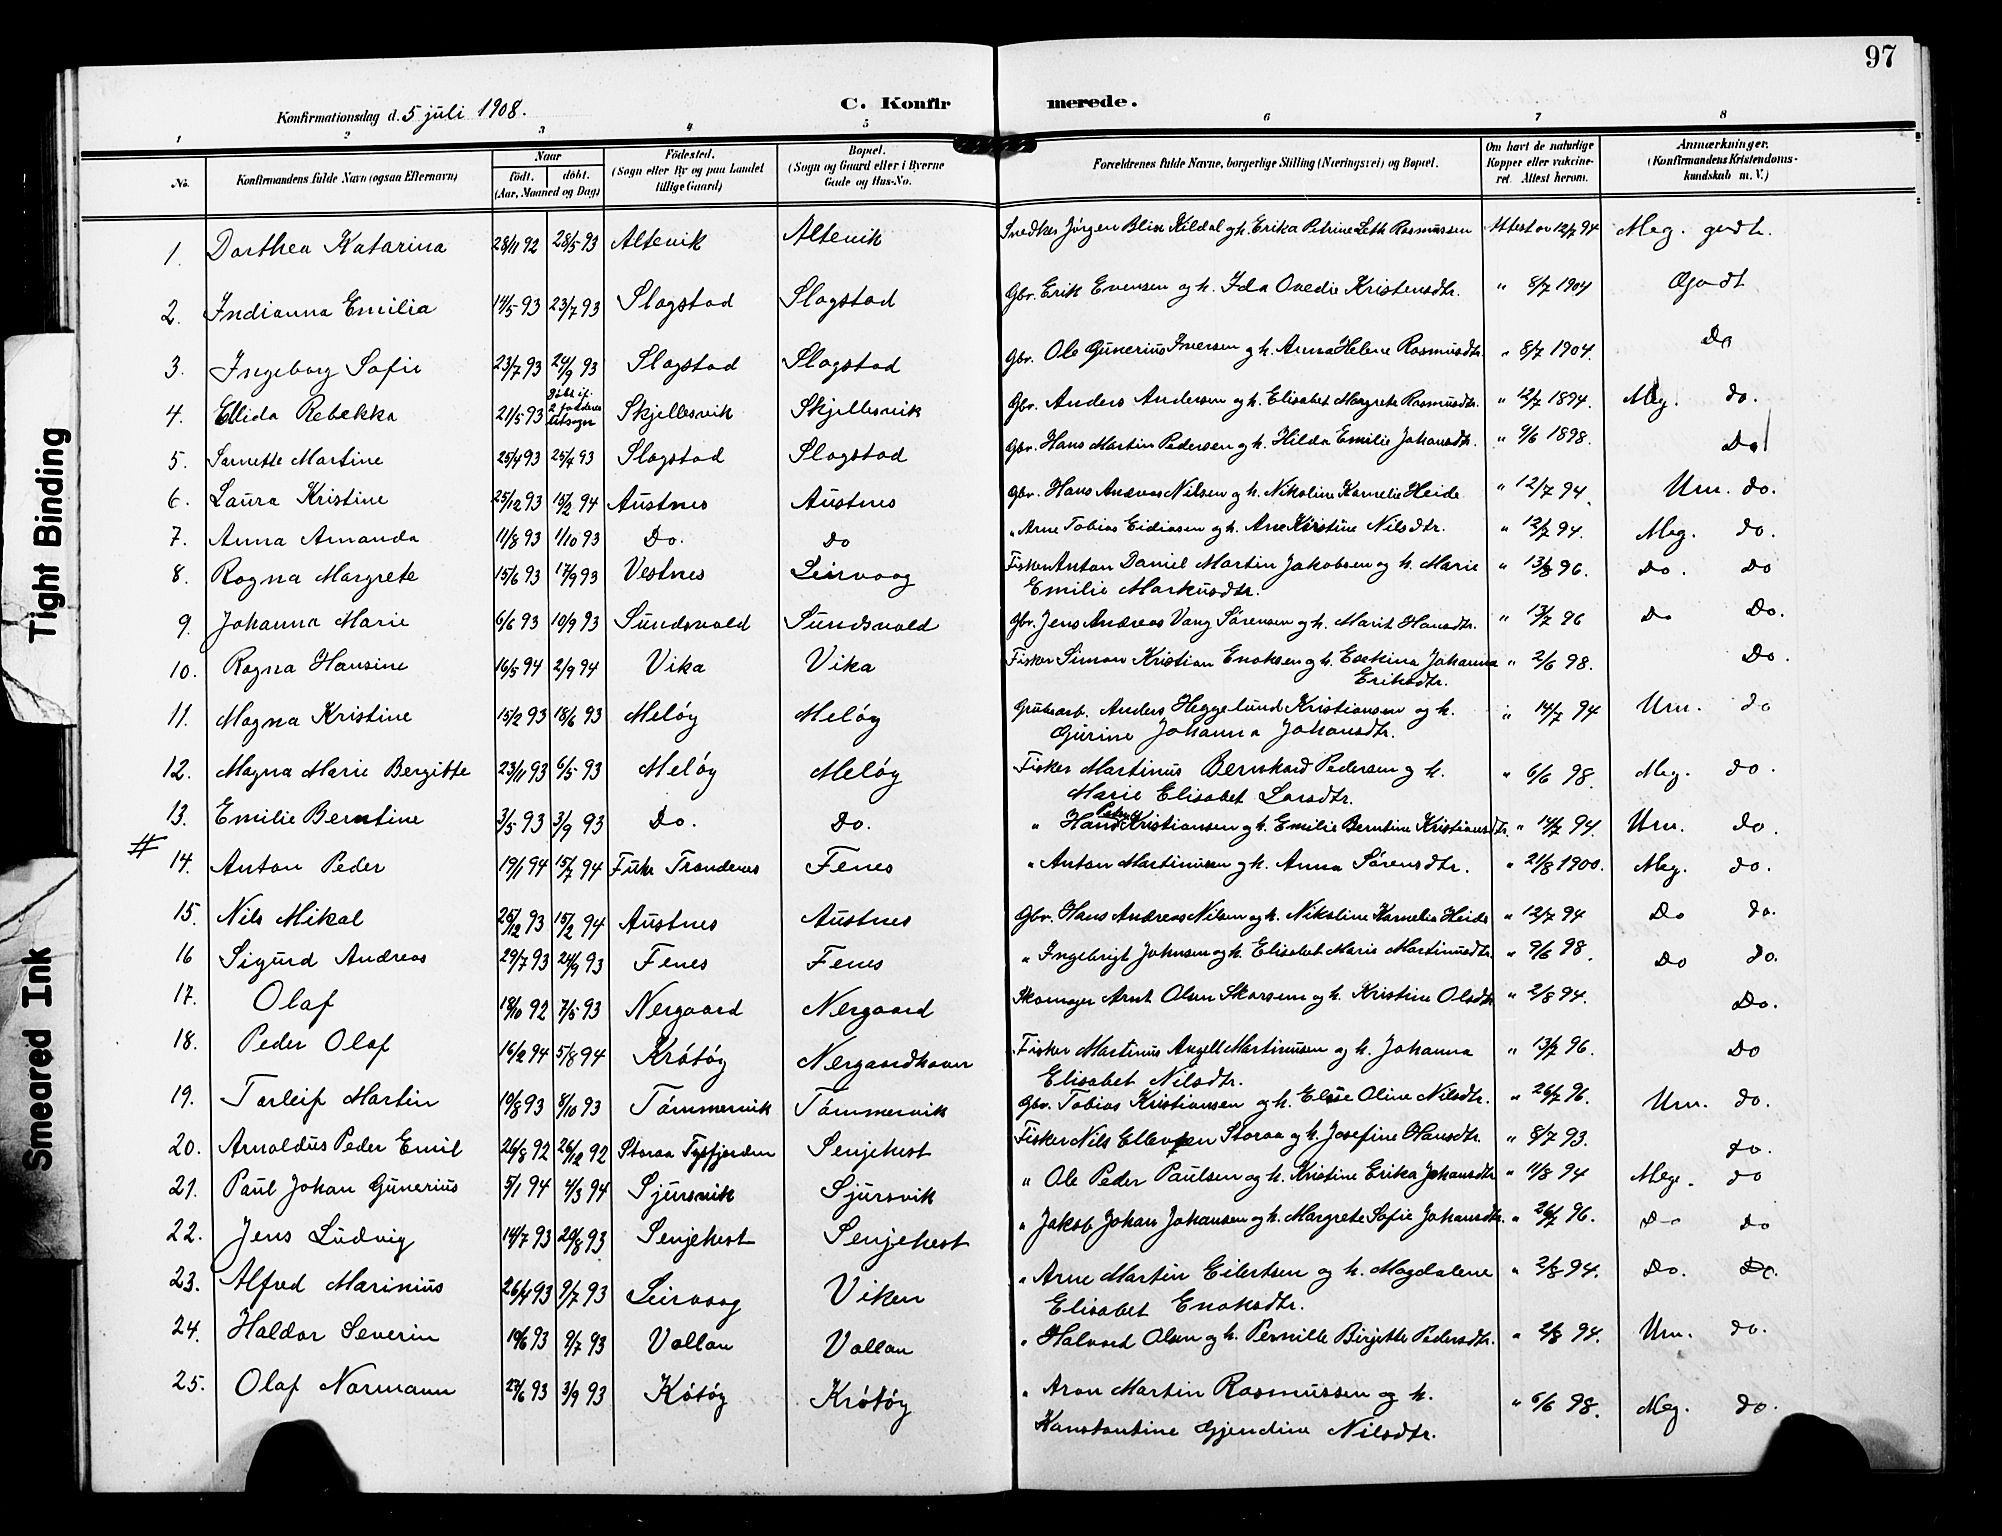 97
Konfirmationsdag d. 5 juli 1908.
C. Konfirmerede.
1 2 3 4 5 6 7 8
No. Konfirmandens fulde Navn (ogsaa Efternavn) Naar født. døbt. (Aar, Maaned og Dag) Fødested. (Sogn eller By og paa Landet tillige Gaard) Bopæl. (Sogn og Gaard eller i Byerne Gade og Hus-No. Forældrenes fulde Navne, borgerlige Stilling (Næringsvei) og Bopæl. Om havt de naturlige Kopper eller vaccineret. Attest herom. Anmærkninger. (Konfirmandens Kristendomskundskab m. V.)
1. Dorthea Katarina 28/11 92 28/5 93 Altevik Altevik Snedker Jørgen Blix Kildal og h. Erika Petrine Leth Rasmussen Attest av 12/7 94 Meg. godt.
2. Indianna Emilia 14/5 93 23/7 93 Slagstad Slagstad Gbr. Erik Evensen og h. Ida Ovedie Kristensdtr. " 8/7 1904 Godt
3. Ingeborg Sofie 23/7 93 24/9 93 Slagstad Slagstad Gbr. Ole Gunerius Iversen og h. Anna Helene Rasmusdtr. " 8/7 1904. Do
4. Ellida Rebekka 21/5 93 Skjellesvik Skjellesvik Gbr. Anders Andersen og h. Elisabet Margrete Rasmusdtr. " 12/7 1894. Meg. do.
5. Sanette Martine 25/4 93 25/7 93 Slagstad Slagstad Gbr. Hans Martin Pedersen og h. Hilda Emilie Johansdtr. " 9/6 1898. Do
6. Laura Kristine 25/12 93 15/2 94 Austnes Austnes Gbr. Hans Andreas Nilsen og h. Nikoline Kornelie Heide " 12/7 94. Urn. do.
7. Anna Amanda 11/8 93 1/10 93 Do. Do " Arne Tobias Eidiasen og h. Ane Kirstine Nilsdtr. " 12/7 94. Meg. do.
8. Ragna Margrete 15/6 93 17/9 93 Vestnes Leirvaag Fisker Anton Daniel Martin Jakobsen og h. Marie " 13/8 96. Do. Do
Emilie Markusdtr.
9. Johanna Marie 6/6 93 10/9 93 Sundsvold Sundsvold Gbr. Jens Andreas Vang Sørensen og h. Marit Hansdtr. " 13/7 96 Do Do.
10. Ragna Hansine 16/5 94 2/9 94 Vika Vika Fisker Simon Kristian Enoksen og h. Esekina Johanna " 2/6 98. Do.
Eriksdtr.
11. Magna Kristine 15/2 93 18/6 93 Meløy Meløy Grubearb. Anders Heggelund Kristiansen og h. " 14/7 94 Urn. do
Gurine Johanna Johansdtr.
12. Magna Marie Bergitte 23/11 93 6/5 93 Meløy Meløy Fisker Martinus Bernhard Pedersen og h. " 6/6 98. Meg. do.
Marie Elisabet Larsdtr.
13. Emilie Berntine 3/5 93 3/9 93 Do. Do. " Hans Kristiansen og h. Emilie Berntine Kristiansdtr. " 14/7 94. Urn. do.
#
14. Anton Peder 19/1 94 15/7 94 Trondenes Fenes " Anton Martinusen og h. Anna Sørensdtr. " 21/8 1900. Meg. do.
15. Nils Mikal 25/12 93 15/2 94 Austnes Austnes Gbr. Hans Andreas Nilsen og h. Nikoline Kornelia Heide " 12/7 94 Do do.
16 Sigurd Andreas 29/7 93 24/9 93 Fenes Fenes " Ingebrigt Johnsen og h. Elisabet Marie Martinusdtr. " 9/6 98. Do do.
17. Olaf 18/10 92 7/5 93 Nergaard Nergaard Skomager Arnt Olsen Skarsem og h. Kristine Olsdtr " 2/8 94. Do.
18. Peder Olaf 16/2 94 5/8 94 Krøtøy Nergaardhavn Fisker Martinus Angell Martinusen og h. Johanna " 13/7 96. Do
Elisabet Nilsdtr.
19. Torleif Martin 10/8 93 8/10 93 Tømmervik Tømmervik Gbr. Tobias Kristiansen og h. Elise Oline Nilsdtr. " 26/7 96. Urn. do.
20. Arnoldus Peder Emil 26/8 92 26/12 92 Storaa Tysfjorden Senjehest Fisker Nils Ellevsen Storaa og h. Josefine Hansdtr. " 8/7 93. do.
21. Paul Johan Gunerius 5/1 94 4/3 94 Sjursvik Sjursvik " Ole Peder Paulsen og h. Kristine Erika Johansdtr " 11/8 94 Meg. do
22. Jens Ludvig 14/7 93 20/8 93 Senjehest Senjehest " Jakob Johan Johansen og h. Margrete Sofie Johansdtr. " 26/7 96. Do do
23. Alfred Marinius 26/4 93 9/7 93 Leirvaag Viken " Arne Martin Eilertsen og h. Magdalene " 2/8 94. Do. Do.
Elisabet Enoksdtr.
24. Haldor Severin 10/6 93 9/7 93 Vollan Vollan " Halvard Olsen og h. Pernille Birgitte Pedersdtr. " 2/8 94. Urn. do.
25. Olaf Normann 27/6 93 3/9 93 Køtøy Krøtøy " Aron Martin Rasmussen og h. " 6/6 98. Meg. do.
Konstantine Gjendine Nilsdtr.
Tight Binding
Smeared Ink